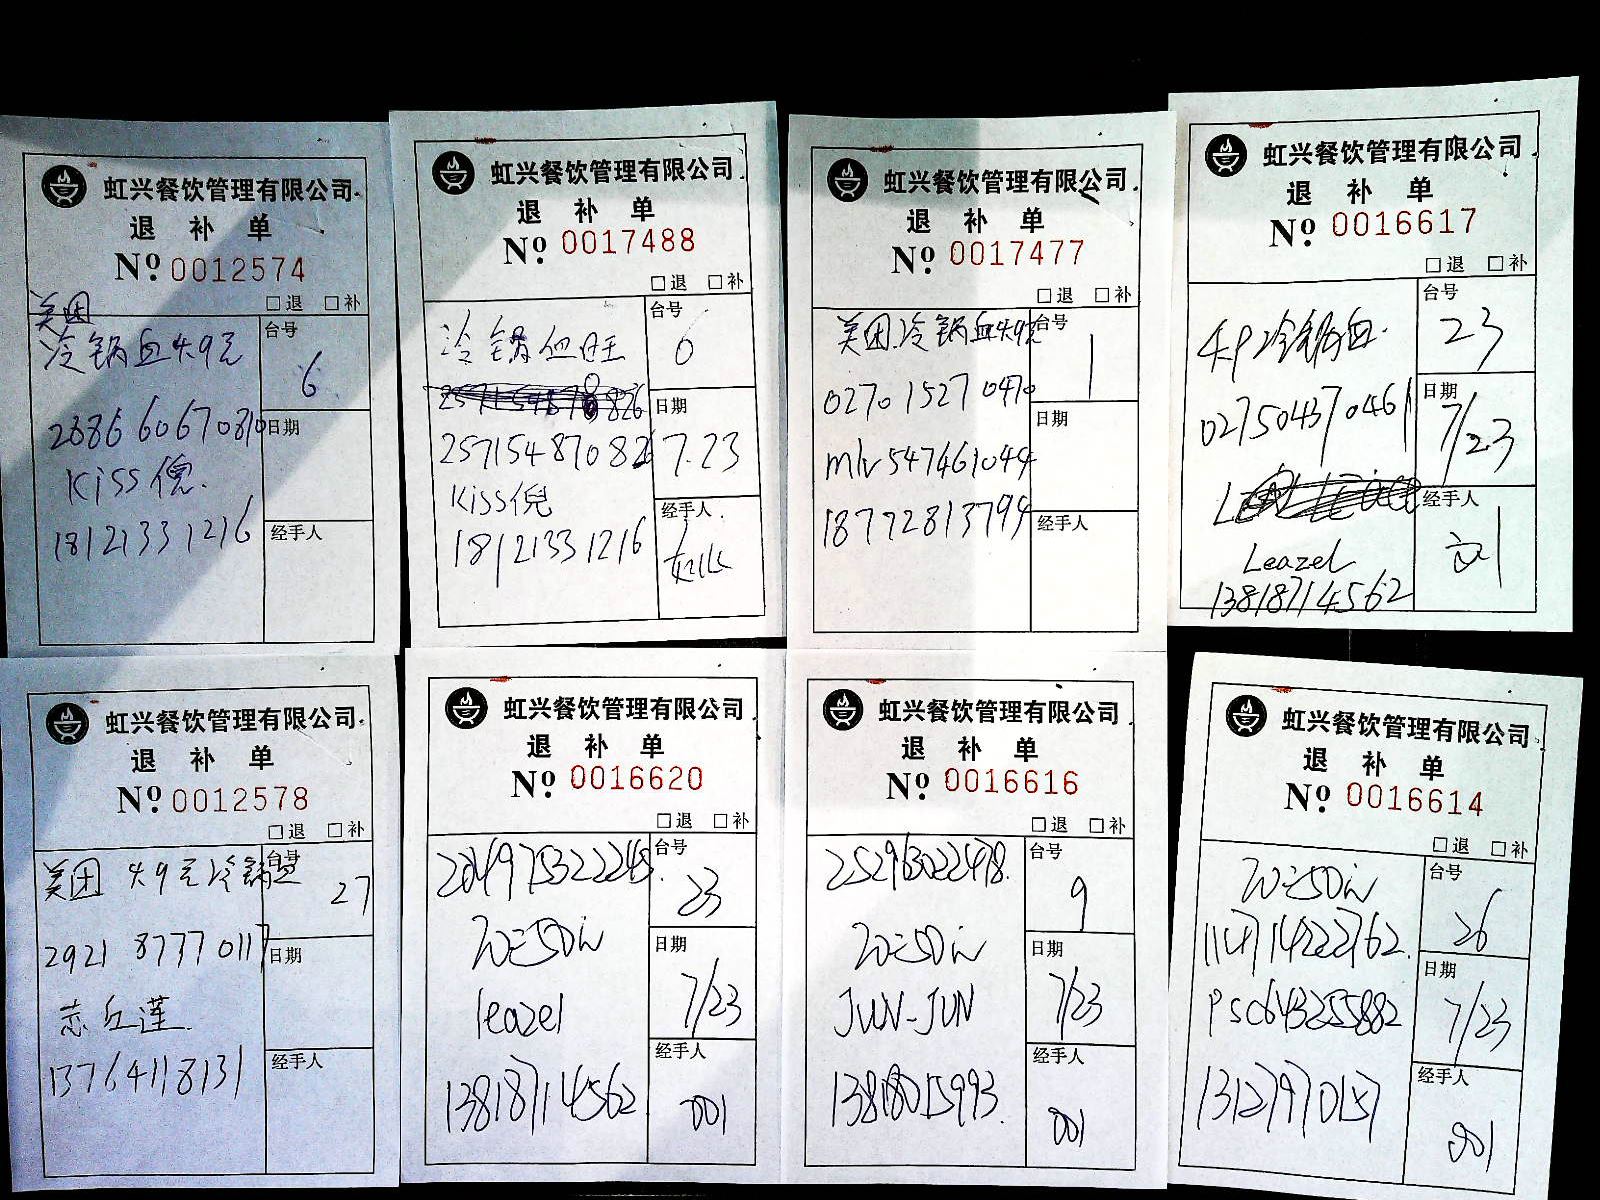 虹兴餐饮管理有限公司
退 补 单
No. 0012574
□退 □补
美团
冷锅血4.9元
台号
6
2686 6067 0810
日期
Kiss倪
18121331216
经手人
虹兴餐饮管理有限公司
退 补 单
No. 0017488
□退 □补
冷锅血旺
台号
6
日期
257154870826
7.23
Kiss倪
经手人
18121331216
虹兴餐饮管理有限公司
退 补 单
No. 0017477
□退 □补
美团冷锅血4.9元
台号
1
0270 1527 0470
日期
mlv547461044
18772813794
经手人
虹兴餐饮管理有限公司
退 补 单
No. 0016617
□退 □补
4.9冷锅血
台号
23
027504370461
日期
7/23
经手人
Leazel
13818714562
虹兴餐饮管理有限公司
退 补 单
No. 0012578
□退 □补
美团 4.9元冷锅血
台号
27
2921 8777 0117
日期
恋红莲
13764118131
经手人
虹兴餐饮管理有限公司
退 补 单
No. 0016620
□退 □补
204975322245
台号
23
日期
7/23
leazel
经手人
13818714562
001
虹兴餐饮管理有限公司
退 补 单
No. 0016616
□退 □补
252963022478
台号
9
日期
7/23
JUN-JUN
经手人
13818015993
001
虹兴餐饮管理有限公司
退 补 单
No. 0016614
□退 □补
台号
26
日期
psc643255882
7/23
经手人
13127970157
001